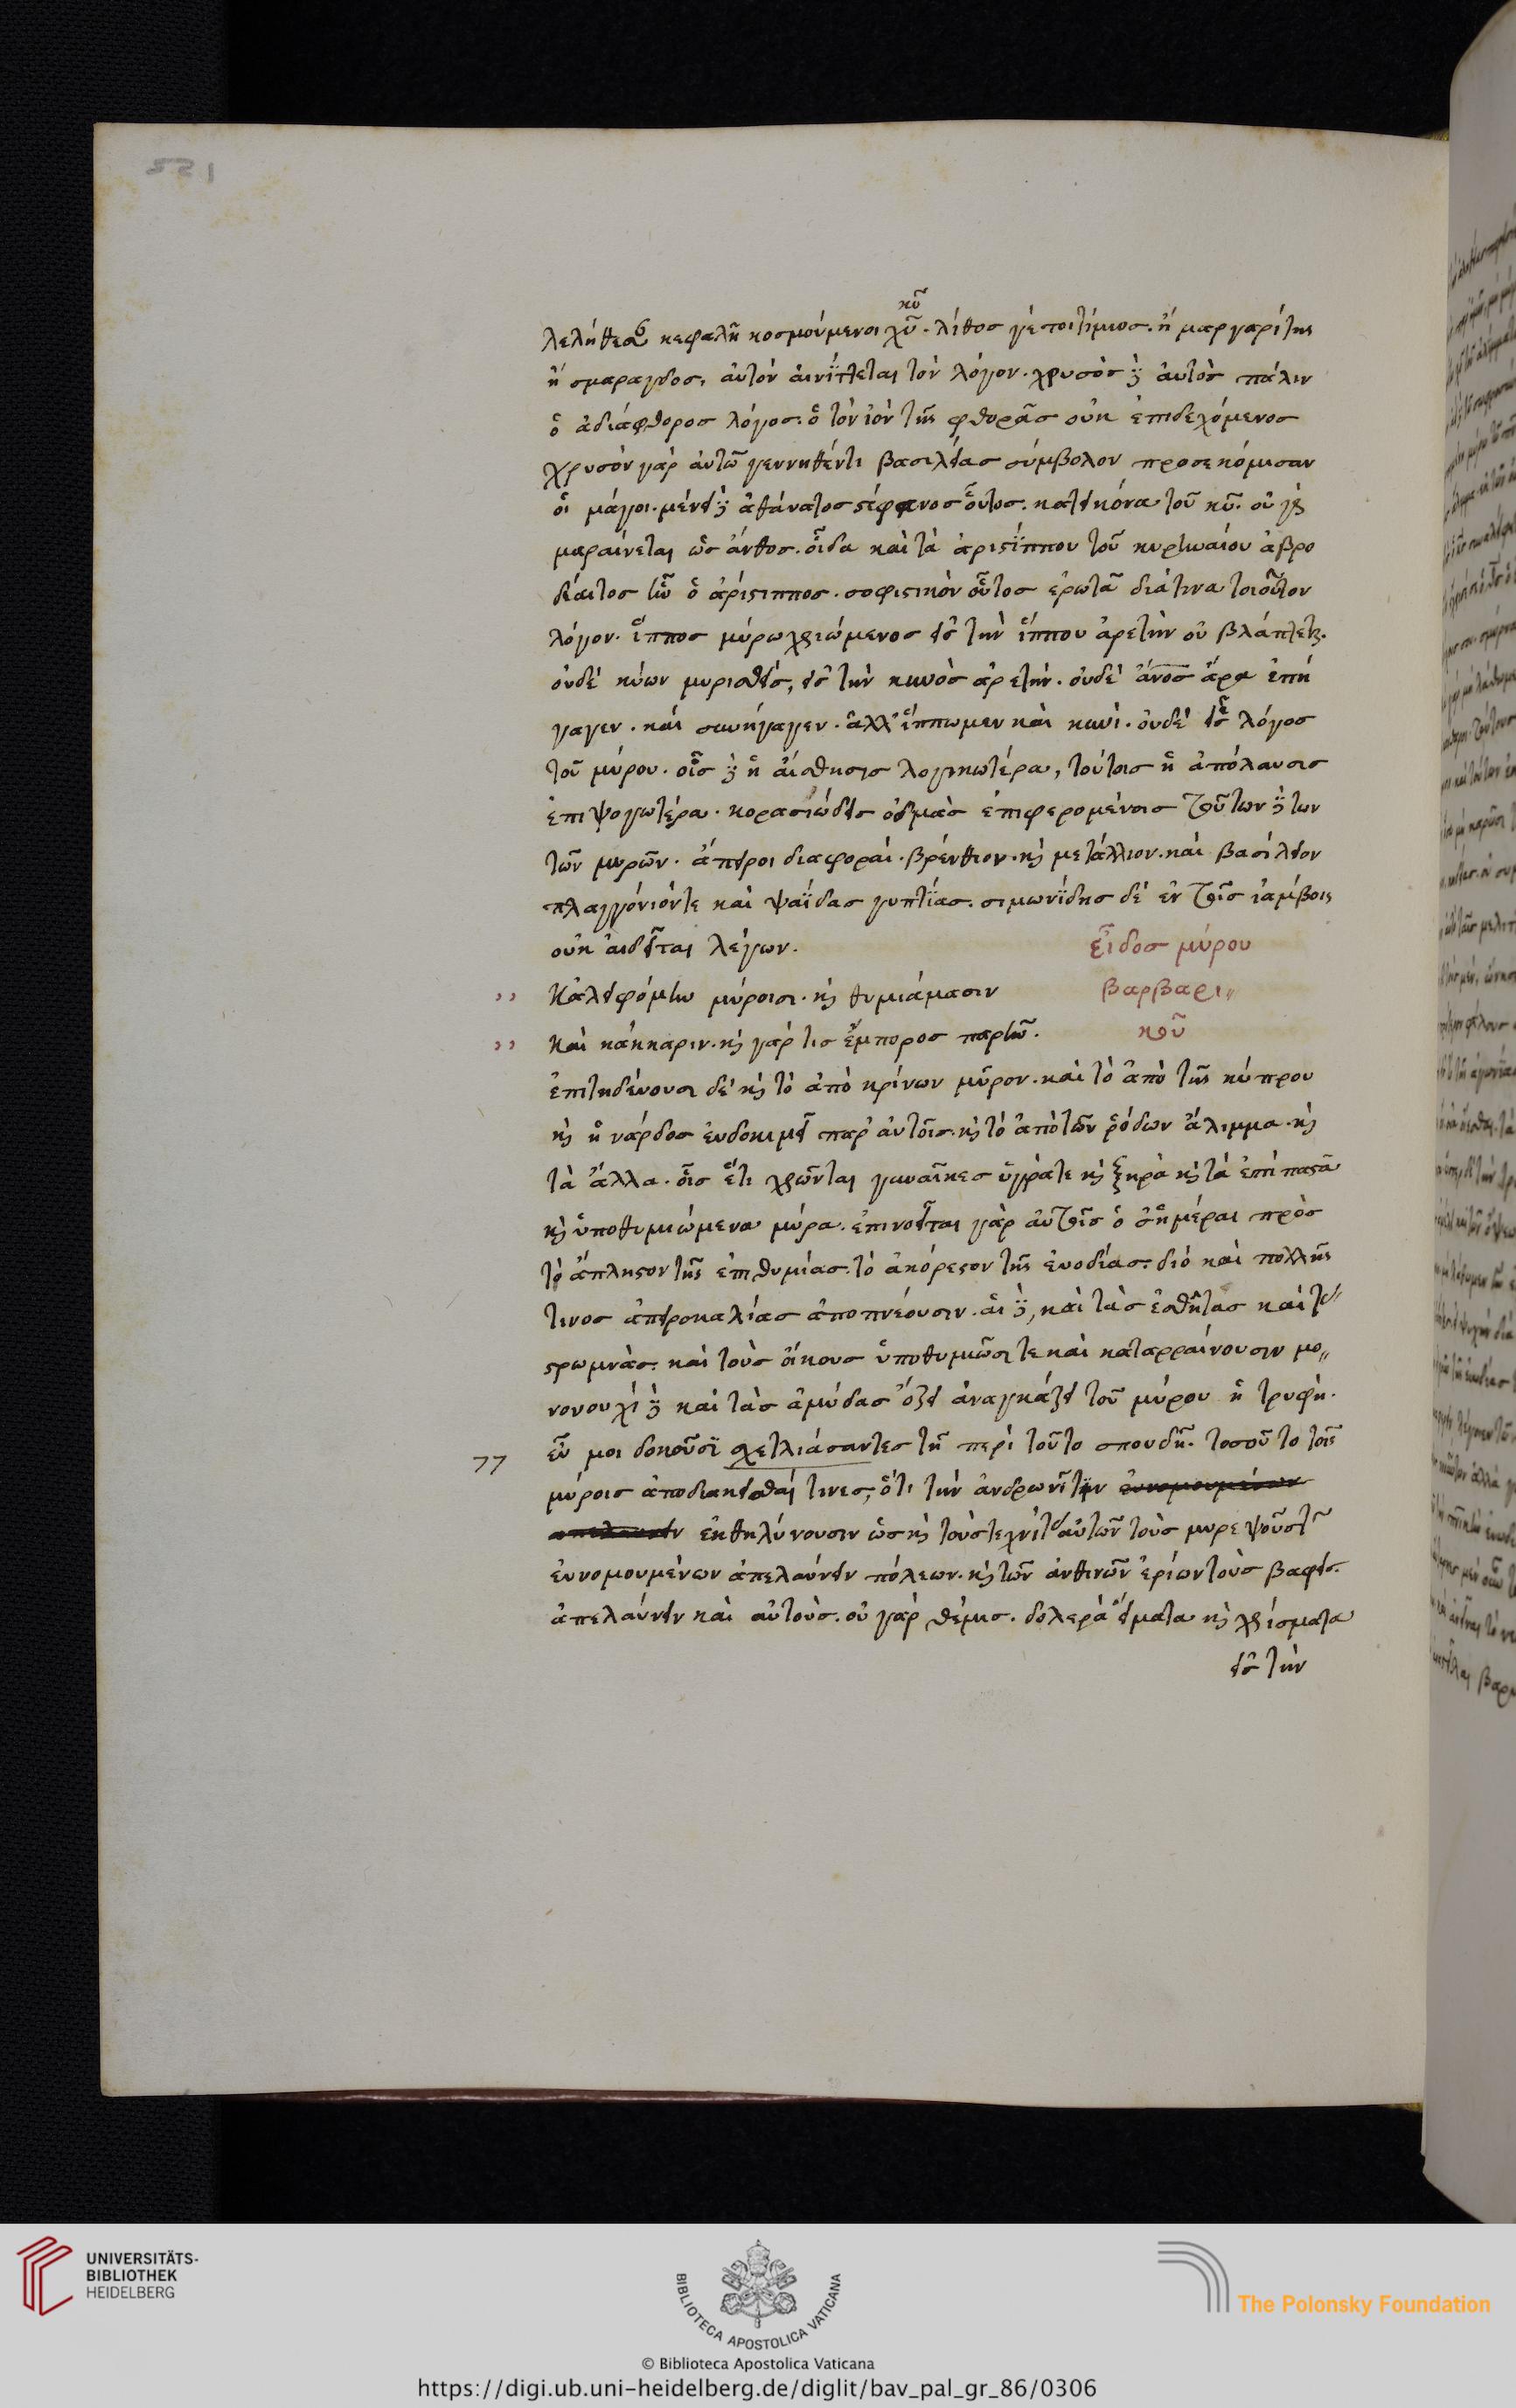 λελήθεσαν κεφαλῇ κοσμούμενοι χυ̅. κυ̅ λίθος γέ τοι τίμιος. ἢ μαργαρίτης
ἢ σμάραγδος, αὐτὸν αἰνίττεται τὸν λόγον. χρυσὸς δὲ αὐτὸς πάλιν
ὁ ἀδιάφθορος λόγος. ὁ τὸν ἰὸν τῆς φθορᾶς οὐκ ἐπιδεχόμενος
χρυσὸν γὰρ αὐτῷ γεννηθέντι βασιλείας σύμβολον προσεκόμισαν
οἱ μάγοι. μένει δὲ ἀθάνατος στέφανος οὗτος. κατ εἰκόνα τοῦ κυ̅. οὐ γὰρ
μαραίνεται ὡς ἄνθος. οἶδα καὶ τὰ ἀριστίππου τοῦ κυρηναίου ἁβρο
δίαιτος ἦν ὁ ἀρίστιππος. σοφιστικὸν οὗτος ἐρωτᾷ διά τινα τοιοῦτον
λόγον. ἵππος μύρῳ χριόμενος εἰς τὴν ἵππου ἀρετὴν οὐ βλάπτεται.
οὐδὲ κύων μυρισθεὶς, εἰς τὴν κυνὸς ἀρετήν. οὐδὲ ἄνος ἄρα ἐπή
γαγεν. καὶ συνήγαγεν. ἀλλ' ἵππῳ μὲν καὶ κυνὶ. οὐδὲ εἷς λόγος
τοῦ μύρου. οἷς δὲ ἡ αἴσθησις λογικωτέρα, τούτοις ἡ ἀπόλαυσις
ἐπιψογωτέρα. κορασιώδεις ὀδμὰς ἐπιφερομένοις τούτων δὲ των
τῶν μυρῶν. ἄπειροι διαφοραί. βρένθιον. καὶ μετάλλιον. καὶ βασίλειον
πλαγγόνιόν τε καὶ ψαΐδας γυπτίας. σιμωνίδης δὲ ἐν τοῖς ἰάμβοις
οὐκ αἰδεῖται λέγων.
εἶδος μύρου
βαρβαρι〃
κοῦ
,, Κἀλειφόμην μύροισι. καὶ θυμιάμασιν
,, Καὶ κάκκαριν. καὶ γάρ τις ἔμπορος παρῆν.
ἐπιτηδεύουσι δὲ καὶ τὸ ἀπὸ κρίνων μῦρον. καὶ τὸ ἀπὸ τῆς κύπρου
καὶ ἡ νάρδος εὐδοκιμεῖ παρ' αὐτοῖς. καὶ τὸ ἀπὸ τῶν ῥόδων ἄλιμμα. καὶ
τὰ ἄλλα. οἷς ἔτι χρῶνται γυναῖκες ὑγρά τε καὶ ξηρὰ καὶ τὰ ἐπίπαστα
καὶ ὑποθυμιώμενα μύρα. ἐπινοεῖται γὰρ αὐτοῖς ὁσημέραι πρὸς
τὸ ἄπληστον τῆς ἐπιθυμίας. τὸ ἀκόρεστον τῆς εὐοδίας. διὸ καὶ πολλῆς
τινος ἀπειροκαλίας ἀποπνέουσιν. αἱ δὲ, καὶ τὰς ἐσθῆτας καὶ τὰς
στρωμνὰς. καὶ τοὺς οἴκους ὑποθυμιῶσί τε καὶ καταρραίνουσιν μο〃
νονουχὶ δὲ καὶ τὰς ἀμύδας ὄζει ἀναγκάζει τοῦ μύρου ἡ τρυφή.
εὖ μοι δοκοῦσι σχετλιάσαντες τῇ περὶ τοῦτο σπουδῇ. τοσοῦτο τοῖς
μύροις ἀποδιακεῖσθαί τινες, ὅτι τὴν ἀνδρωνῖτιν εὐνομουμένων
απελαυνειν ἐκθηλύνουσιν ὡς καὶ τοὺς τεχνίτας αὐτῶν τοὺς μυρεψοὺς τῶν
εὐνομουμένων ἀπελαύνειν πόλεων. καὶ τῶν ἀνθινῶν ἐρίων τοὺς βαφεῖς.
ἀπελαύνειν καὶ αὐτούς. οὐ γὰρ θέμις. δολερὰ εἵματα καὶ χρίσματα
εἰς τὴν
UNIVERSITÄTS-
BIBLIOTHEK
HEIDELBERG
BIBLIOTECA APOSTOLICA VATICANA
The Polonsky Foundation
© Biblioteca Apostolica Vaticana
https://digi.ub.uni-heidelberg.de/diglit/bav_pal_gr_86/0306